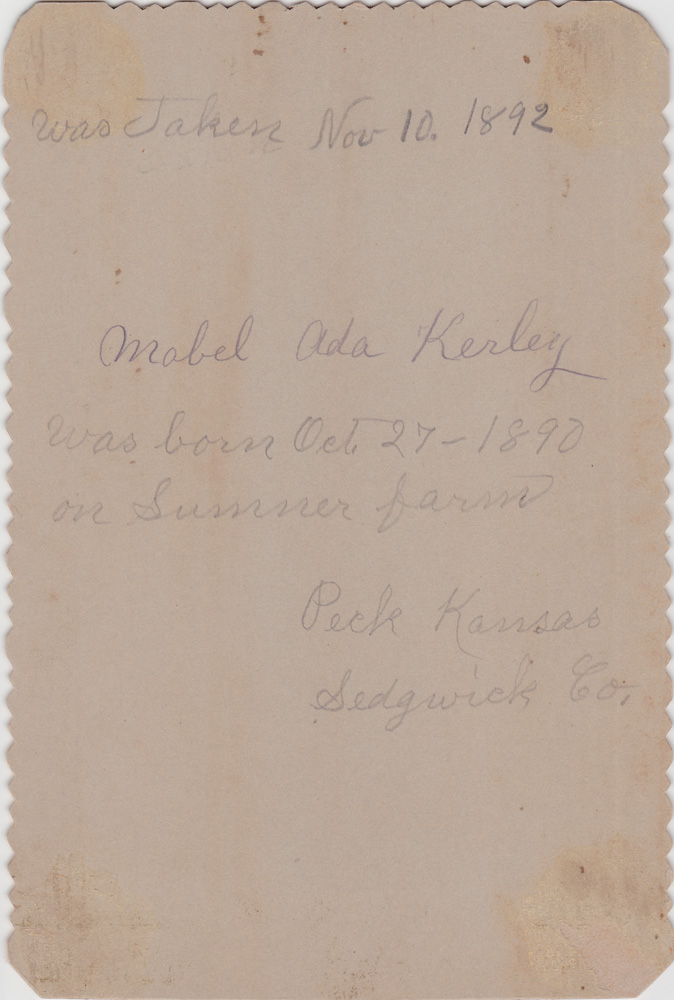 was Taken Nov 10. 1892
Mabel Ada Kerley
was born Oct. 27-1890
on Sumner farm
Peck Kansas
Sedgwick Co.